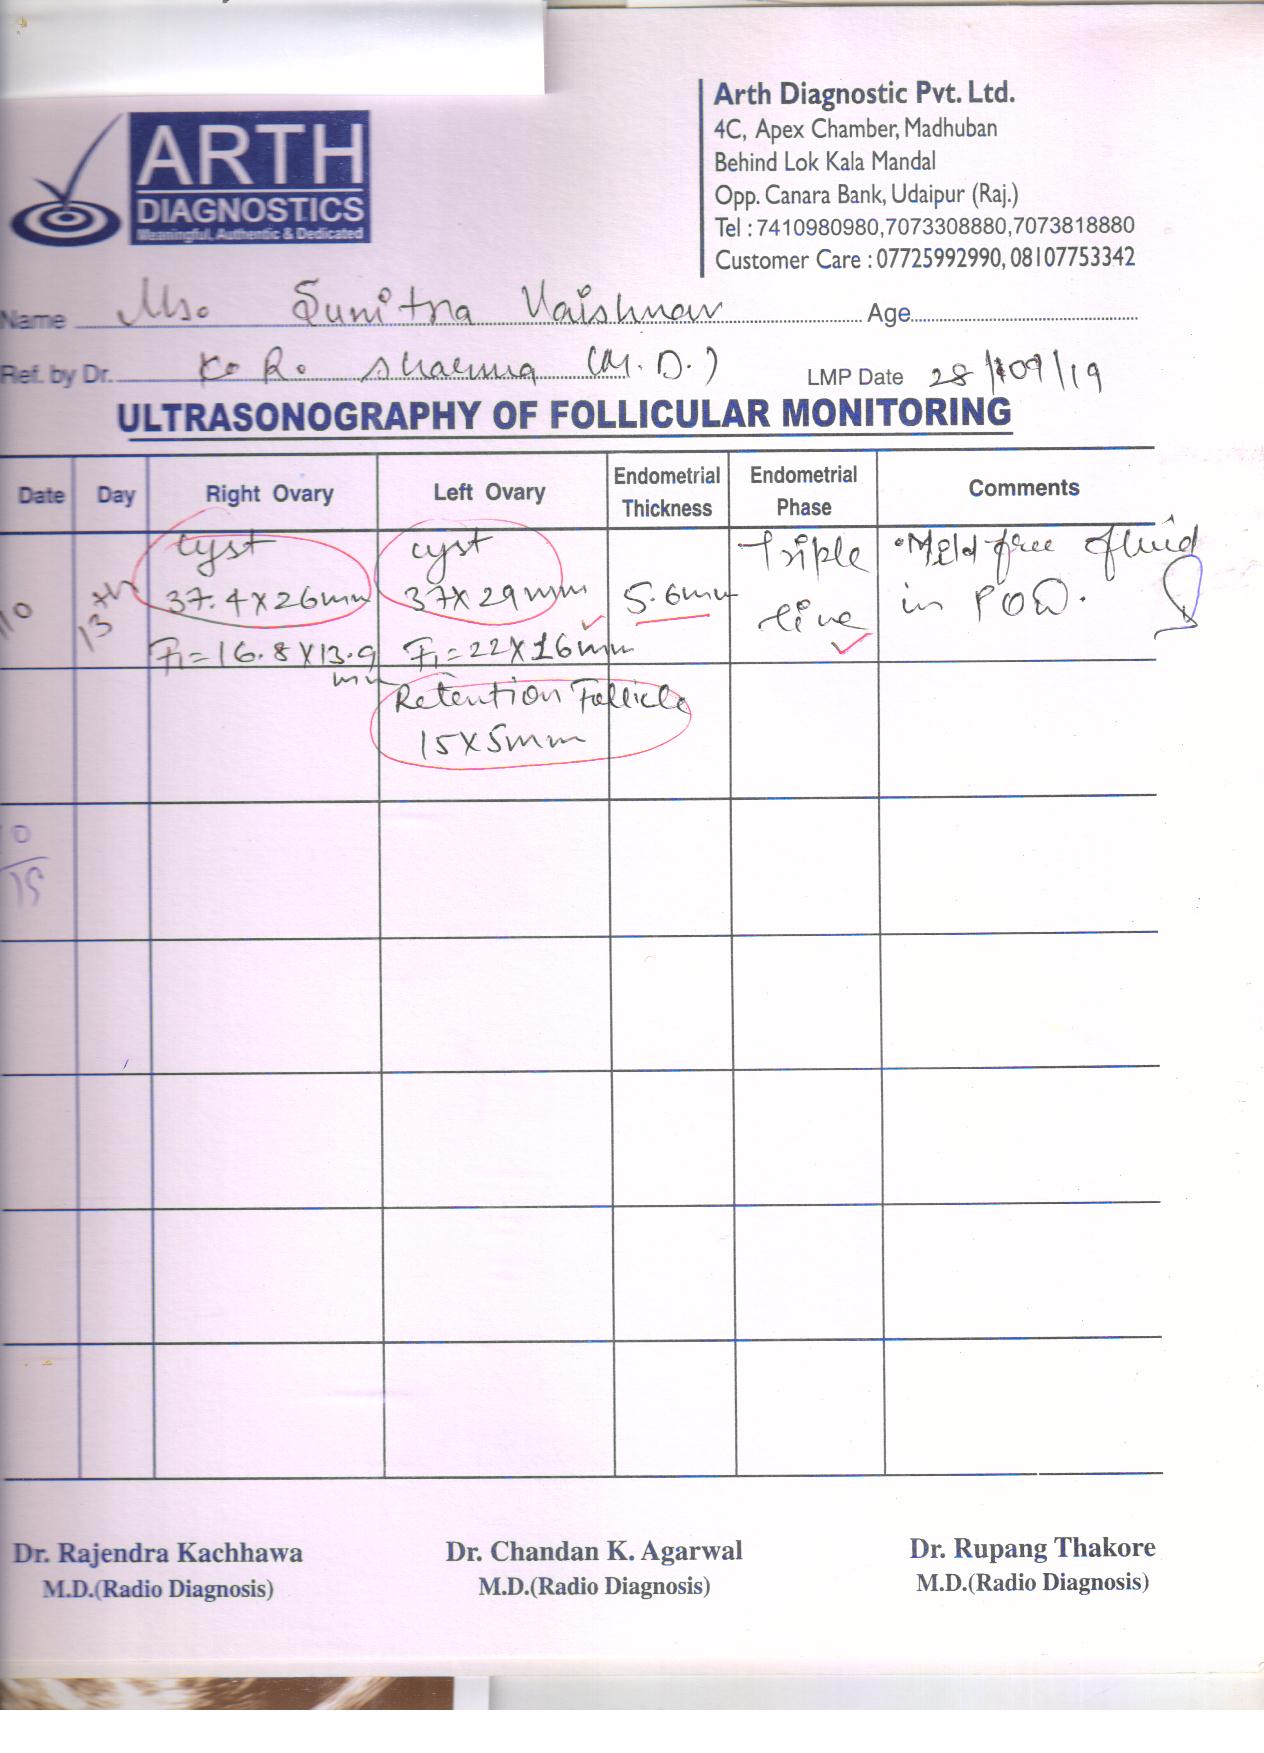 ARTH
DIAGNOSTICS
Meaningful, Authentic & Dedicated
Arth Diagnostic Pvt. Ltd.
4C, Apex Chamber, Madhuban
Behind Lok Kala Mandal
Opp. Canara Bank, Udaipur (Raj.)
Tel : 7410980980,7073308880,7073818880
Customer Care : 07725992990, 08107753342
Name Ms. Sunitra Vaishnav Age
Ref. by Dr. K. R. Sharma (M.D.) LMP Date 28/09/19
ULTRASONOGRAPHY OF FOLLICULAR MONITORING
Date Day Right Ovary Left Ovary Endometrial Thickness Endometrial Phase Comments
cyst cyst Triple Mild free fluid
10 13th 37.4 X 26mm 37 X 29mm 5.6mm line in POD.
F1 = 16.8 X 13.9 mm F1 = 22 X 16mm
Retention Follicle
15 X 5mm
Dr. Rajendra Kachhawa
M.D.(Radio Diagnosis)
Dr. Chandan K. Agarwal
M.D.(Radio Diagnosis)
Dr. Rupang Thakore
M.D.(Radio Diagnosis)